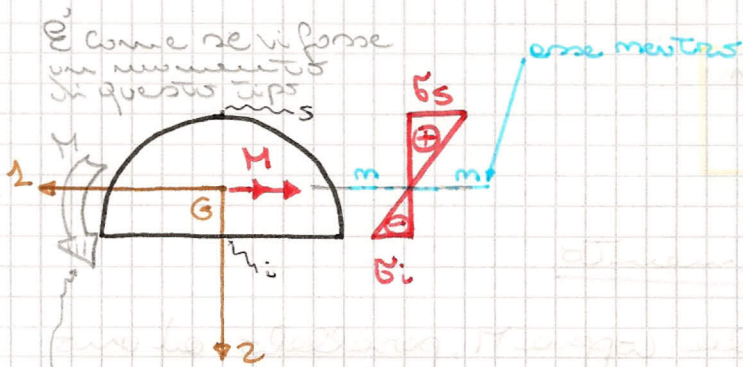 È come se vi fosse
un momento
di questo tipo
asse neutro
s
σs
⊕
M
M
1
n n
G
⊖
i
σi
2